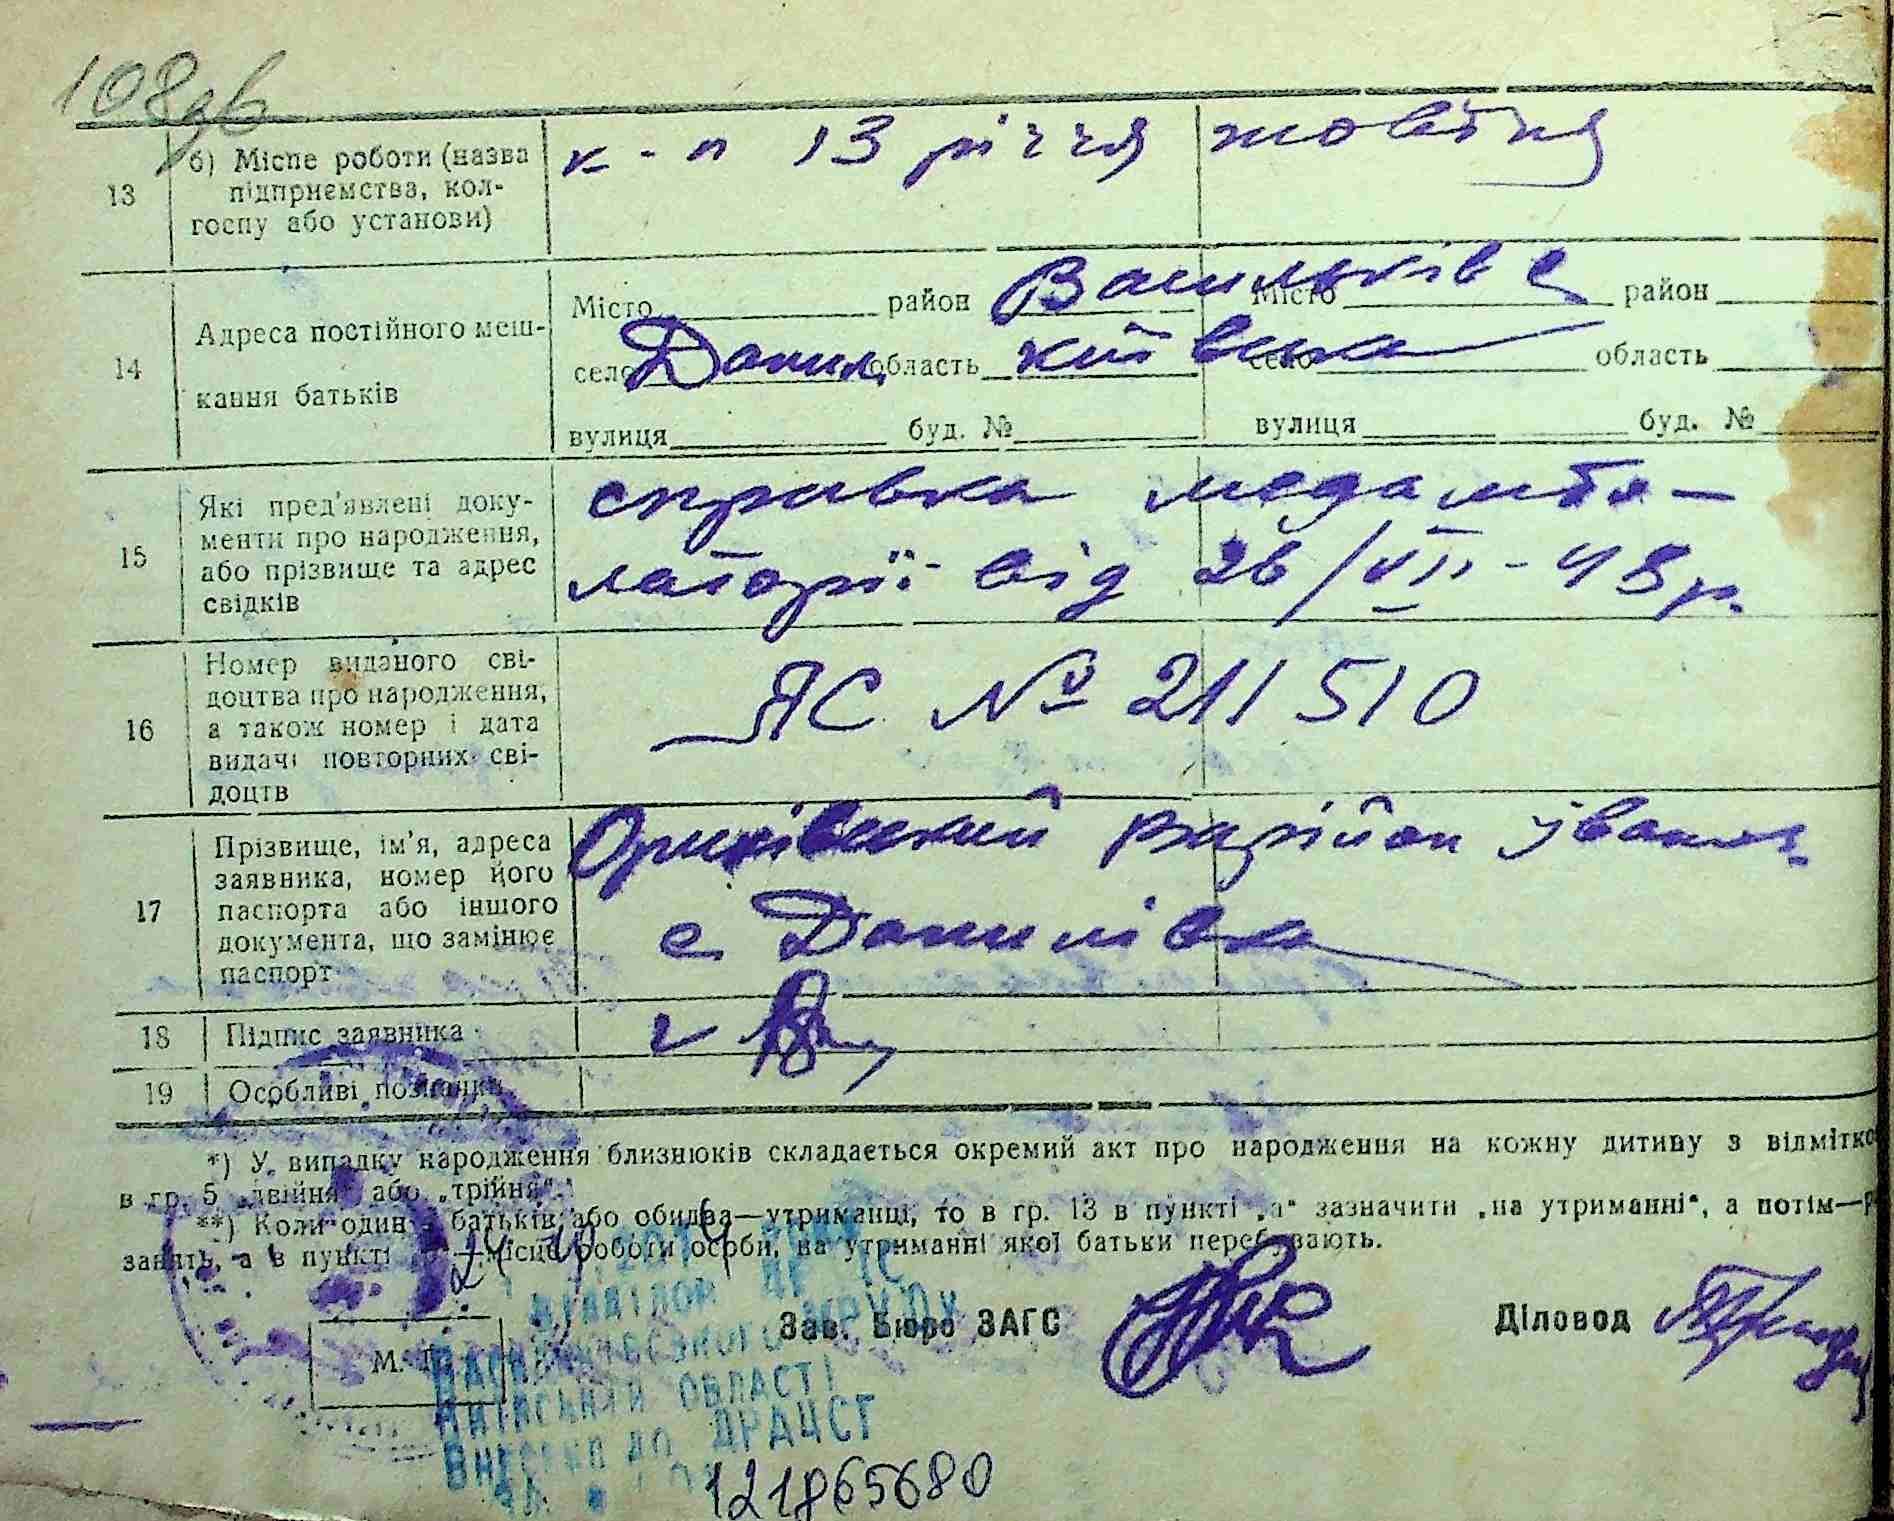 108зв
13
б) Місце роботи (назва
підприємства, кол-
госпу або установи)
к-п 13 річчя жовтня
14
Адреса постійного меш-
кання батьків
Місто район Васильків с Місто район
село Данил. область київська село область
вулиця буд. № вулиця буд. №
15
Які пред'явлені доку-
менти про народження,
або прізвище та адрес
свідків
справка медамбу-
латорії від 26/VII-43р.
16
Номер виданого сві-
доцтва про народження,
а також номер і дата
видачі повторних сві-
доцтв
ЯС № 211510
17
Прізвище, ім'я, адреса
заявника, номер його
паспорта або іншого
документа, що замінює
паспорт
Іван
с. Данилівка
18
Підпис заявника
19
Особливі познанки
*) У випадку народження близнюків складається окремий акт про народження на кожну дитину з відмітко
в гр. 5 „двійня“ або „трійня“.
**) Коли один з батьків або обидва—утриманці, то в гр. 13 в пункті „а“ зазначити „на утриманні“, а потім—
занять, а в пункті —місце роботи особи, на утриманні якої батьки перебувають.
Зав. Бюро ЗАГС
Діловод
М. П.
КИЇВСЬКІЙ ОБЛАСТІ
ВНЕСЕНО ДО ДРАЦСГ
121865680